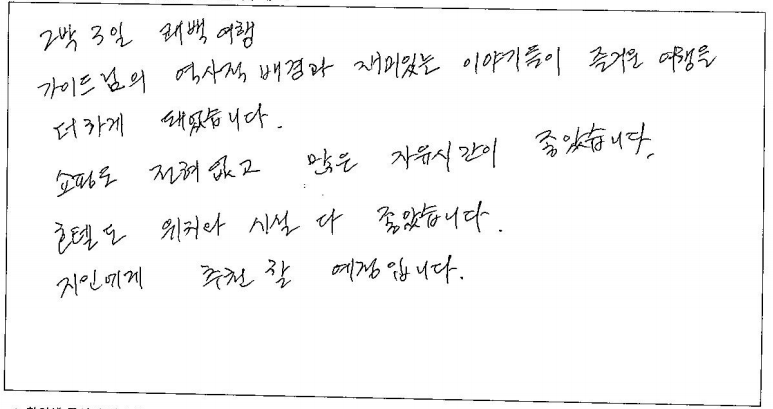 2박 3일 퀘백 여행
가이드님의 역사적 배경과 재미있는 이야기들이 즐거운 여행을
더하게 돼었습니다.
쇼핑도 전혀 없고 많은 자유시간이 좋았습니다.
호텔도 위치와 시설 다 좋았습니다.
지인에게 추천 할 예정입니다.